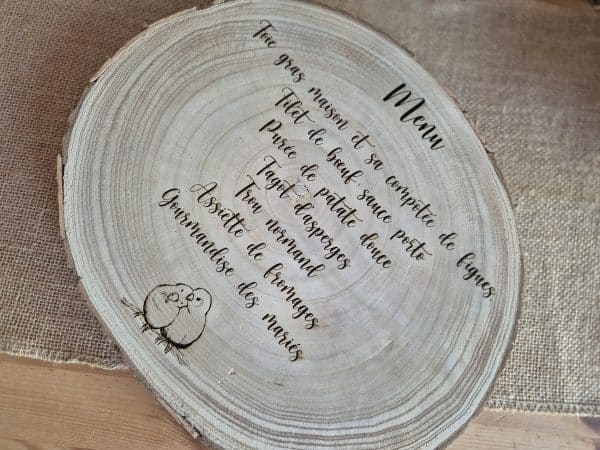 Menu
Foie gras maison et sa compotée de figues
Filet de bœuf sauce porto
Purée de patate douce
Fagot d'asperges
Trou normand
Assiette de fromages
Gourmandise des mariés